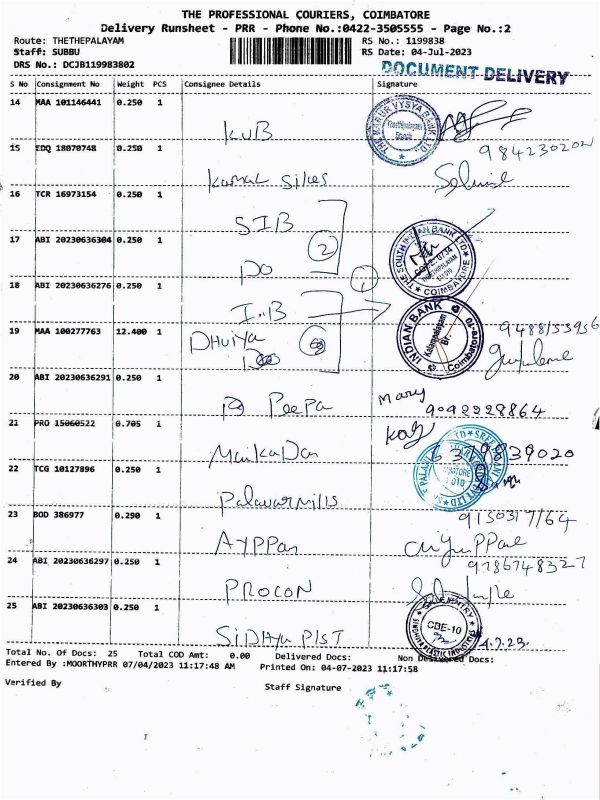 THE PROFESSIONAL COURIERS, COIMBATORE
Delivery Runsheet - PRR - Phone No.:0422-3505555 - Page No.:2
Route: THETHEPALAYAM RS No.: 1199838
Staff: SUBBU RS Date: 04-Jul-2023
DRS No.: DCJB119983802
DOCUMENT DELIVERY
S No Consignment No Weight PCS Consignee Details Signature
14 MAA 101146441 0.250 1
KVB
THE KARUR VYSYA BANK LTD.
Branch
15 EDQ 18070748 0.250 1
9842302021
16 TCR 16973154 0.250 1
SIB
17 ABI 20230636304 0.250 1
2
PO
THE SOUTH INDIAN BANK LTD
COIMBATORE
18 ABI 20230636276 0.250 1
1
I.B
INDIAN BANK
Kalampalayam
Br.
Coimbatore-10
19 MAA 100277763 12.400 1
DHviya
20 ABI 20230636291 0.250 1
Peepa
Mary
9092228864
21 PRO 15060522 0.705 1
6379839020
22 TCG 10127896 0.250 1
Palavar Mills
23 BOD 386977 0.290 1
Ayppan
24 ABI 20230636297 0.250 1
9786748327
PROCON
25 ABI 20230636303 0.250 1
CBE-10
Total No. Of Docs: 25 Total COD Amt: 0.00 Delivered Docs: Non Delivered Docs:
Entered By :MOORTHYPRR 07/04/2023 11:17:48 AM Printed On: 04-07-2023 11:17:58
Verified By Staff Signature